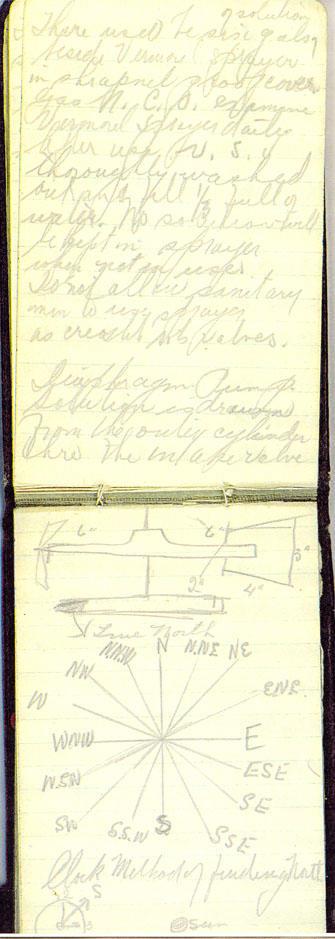 of solution
There used to be six gals
beside Vermorel Sprayer
in shrapnel proof cover
Gas N.C.O. examine
Vermorel Sprayer daily
after use
thoroughly washed
out and fill 1/3 full of
water. No solution will
be kept in sprayer
when not in use
Do not allow sanitary
men to use sprayer
as creosol valves.
Diaphragm Pump
Solution is drawn
From the outer cylinder
thro the intake valve
6" 6" 3"
2" 4"
True North
NNW N N.NE NE
NW
ENE
W
WNW E
W.SW ESE
SE
SW S.S.W S SSE
Clock Method of finding North
S
Sun